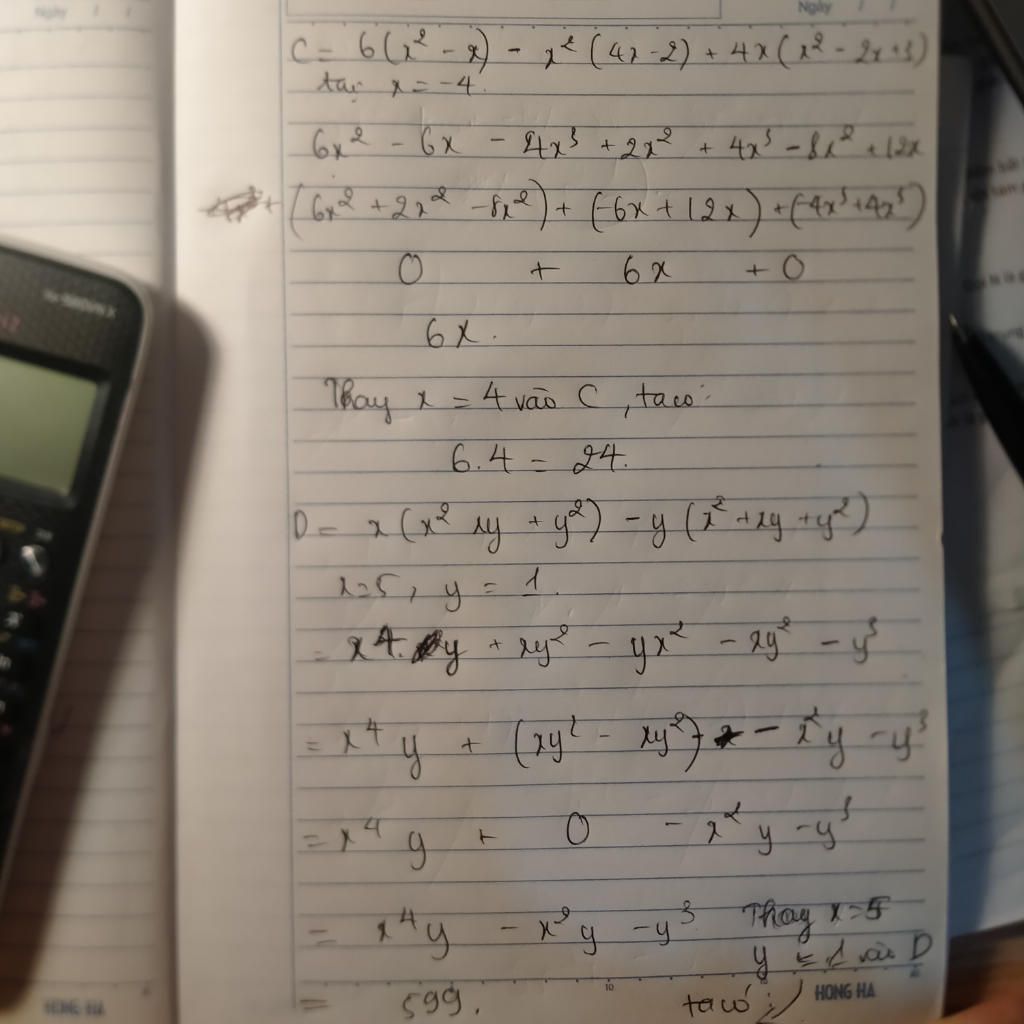 Ngày / /
Ngày / /
C = 6(x² - x) - x²(4x - 2) + 4x(x² - 2x + 3)
tại x = -4.
6x² - 6x - 4x³ + 2x² + 4x³ - 8x² + 12x
+ (6x² + 2x² - 8x²) + (-6x + 12x) + (-4x³ + 4x³)
0 + 6x + 0
6x.
Thay x = 4 vào C, ta có:
6.4 = 24.
D = x(x² xy + y²) - y(x² + xy + y²)
x = 5, y = 1.
= x4. y + xy² - yx² - xy² - y³
= x⁴ y + (xy² - xy²) - x²y - y³
= x⁴ y + 0 - x² y - y³
= x⁴y - x²y - y³ Thay x = 5
y = 1 vào D
= 599. ta có:
10
HONG HA
HONG HA